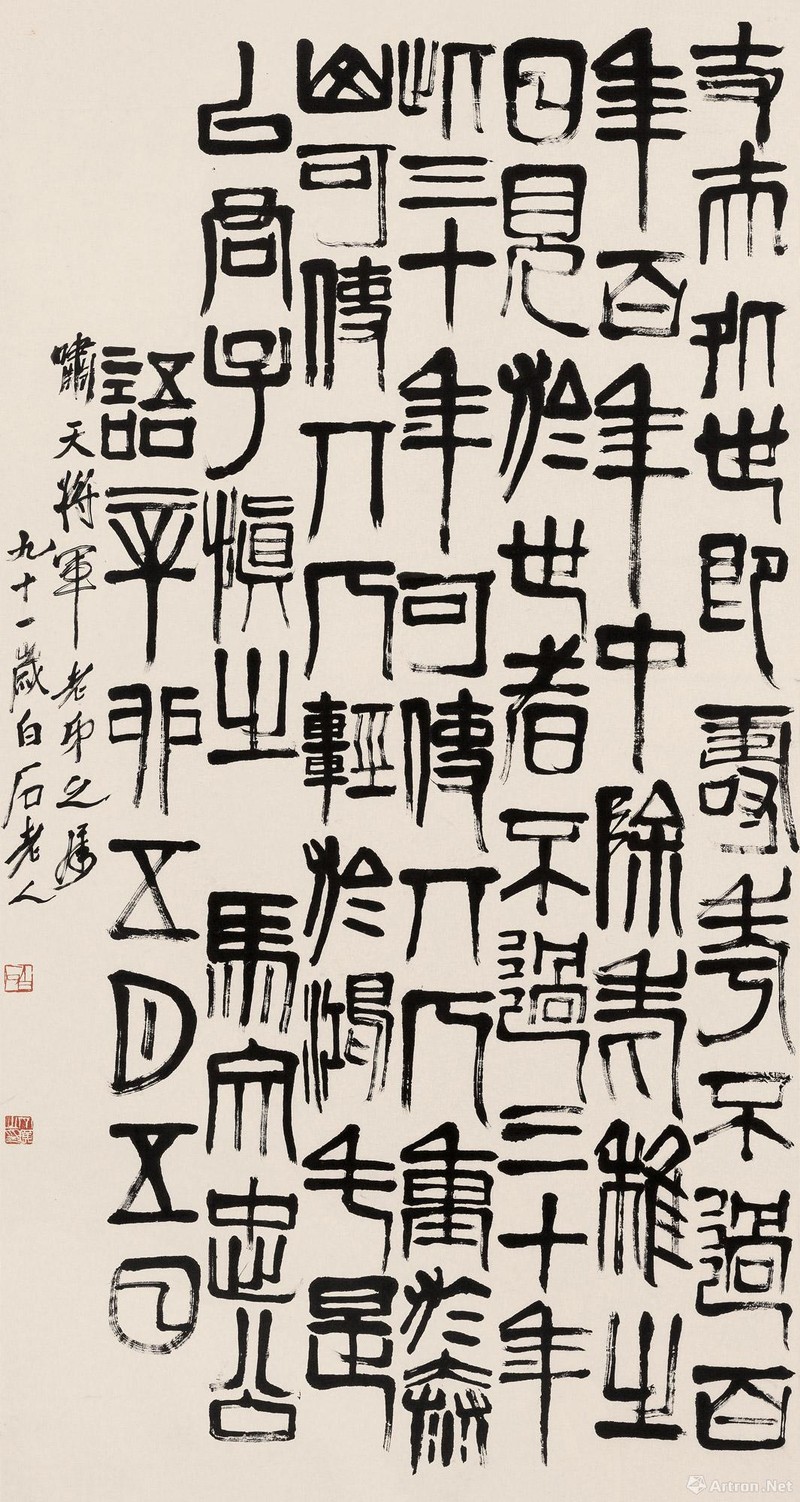 世即壽考不過百
年百年中除老稚之
日見於世者不過三十年
此三十年可使丌人重於泰
山可使丌人輕於鴻毛是
以君子慎之 馬文忠公
語辛卯五月五日
嘯天將軍老弟之屬
九十一歲白石老人
Artron.Net